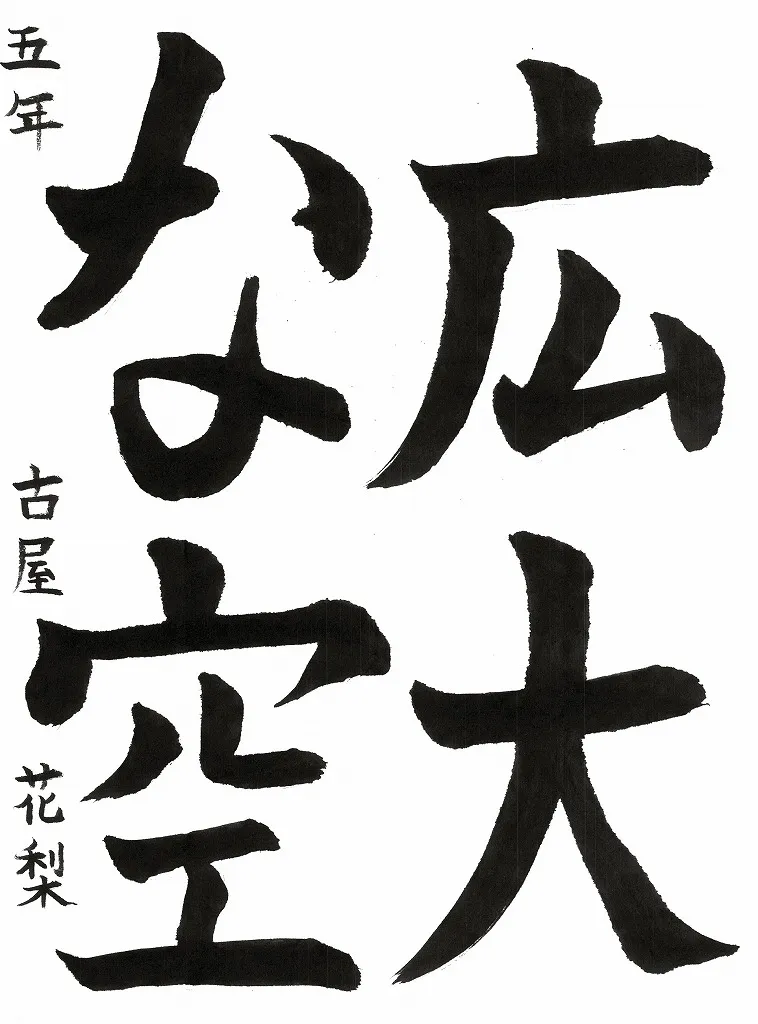 広大
な空
五年 古屋 花梨